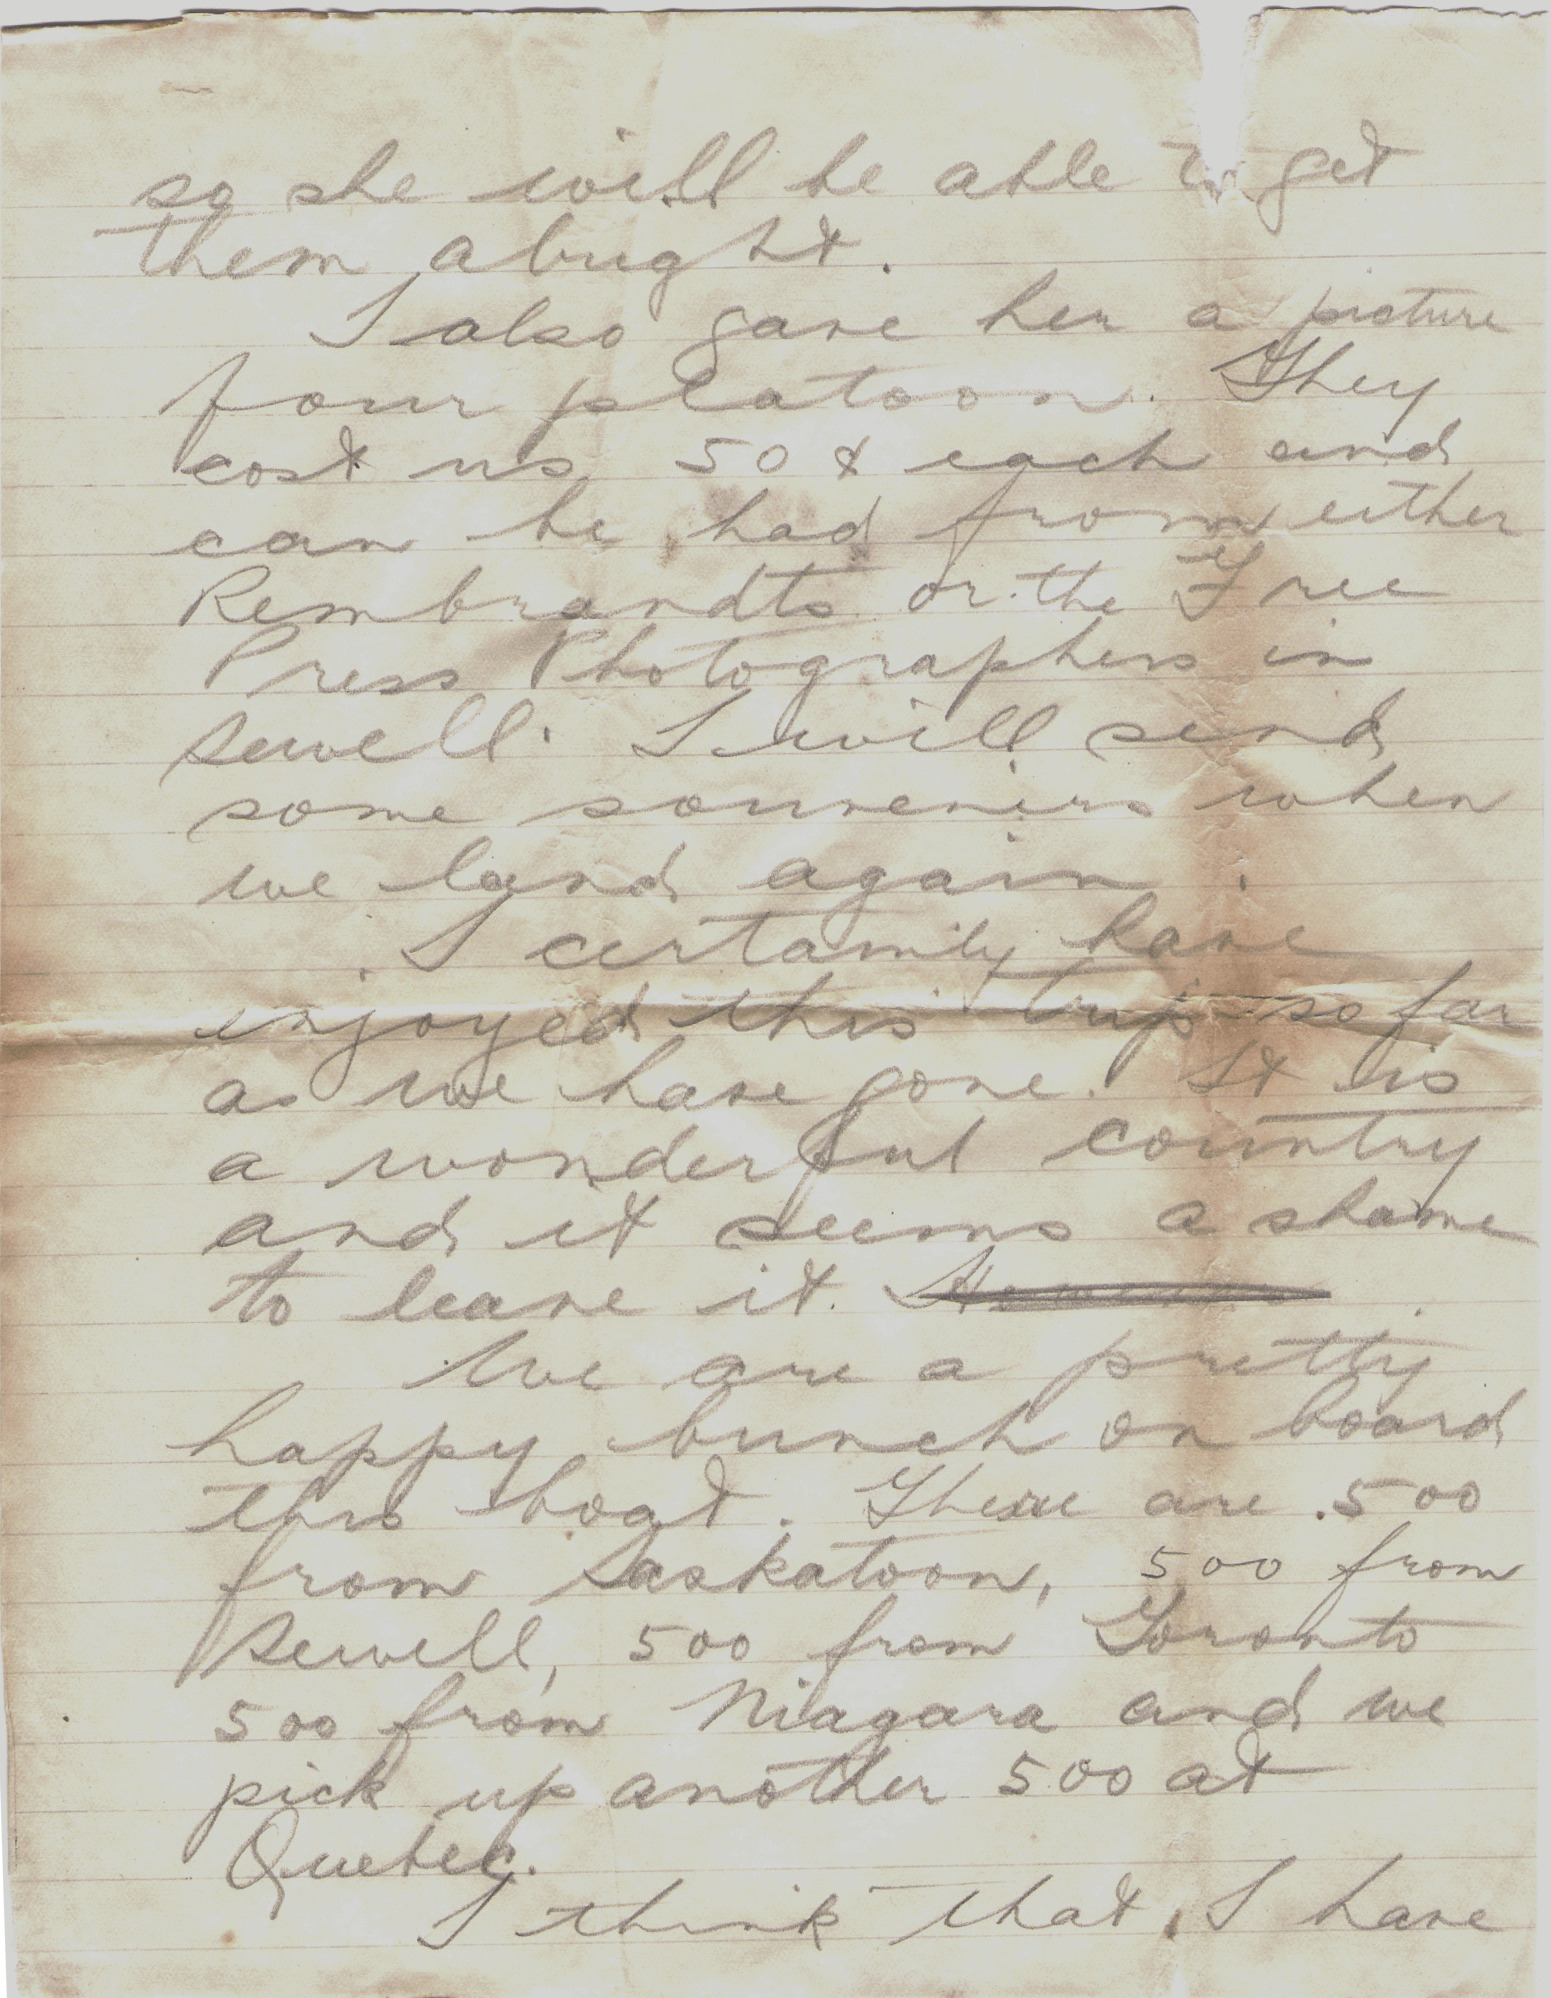 so she will be able to get
them alright.
I also gave her a picture
four platoon. They
cost us 50¢ each and
can be had from either
Rembrandts or the Free
Press Photographers in
Sewell. I will send
some souvenirs when
we land again.
I certainly have
enjoyed this trip so far
as we have gone. It is
a wonderful country
and it seems a shame
to leave it. However
We are a pretty
happy bunch on board
this boat. There are 500
from Saskatoon, 500 from
Sewell, 500 from Toronto
500 from Niagara and we
pick up another 500 at
Quebec.
I think that I have